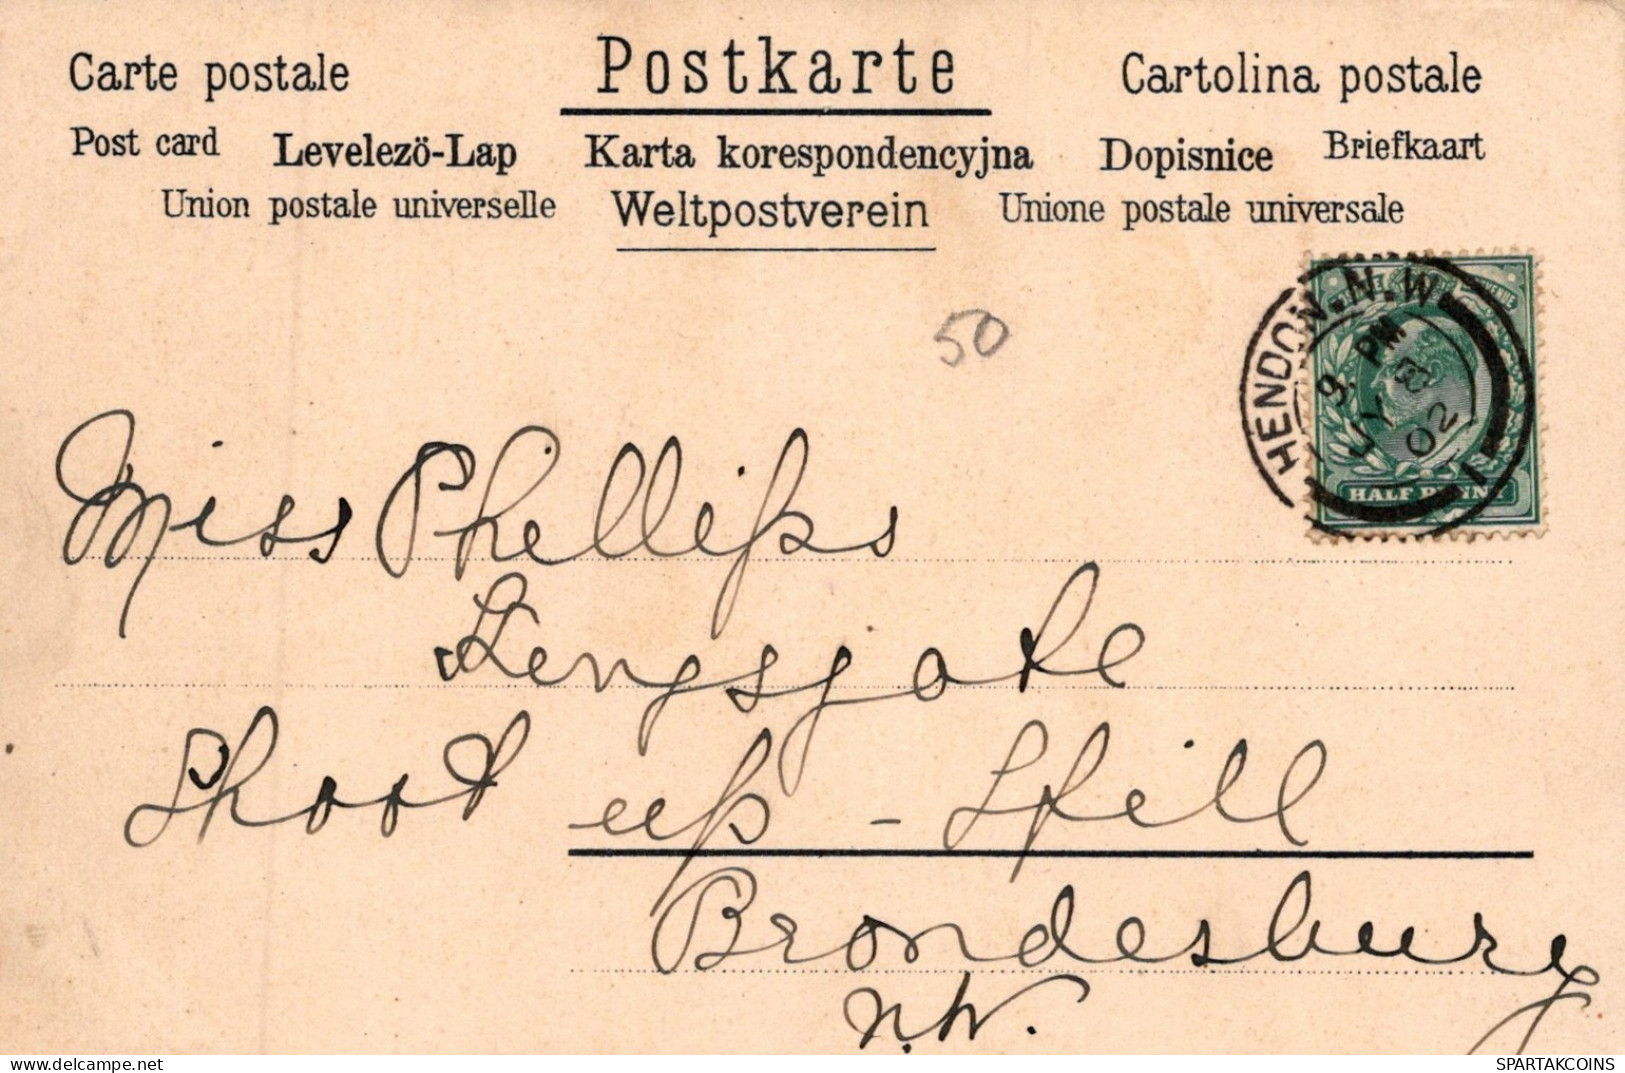 Carte postale Postkarte Cartolina postale
Post card Levelezö-Lap Karta korespondencyjna Dopisnice Briefkaart
Union postale universelle Weltpostverein Unione postale universale
50
HENDON.N.W.
9. PM
JY 8
02
1
HALF PENNY
Miss Phillips
Kingsgate
Shoot up - Hill
Brondesbury
N.W.
delcampe.net
SPARTAKCOINS